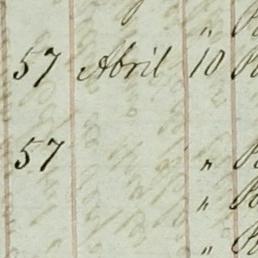 "
57 Abril 10
57 "
"
"